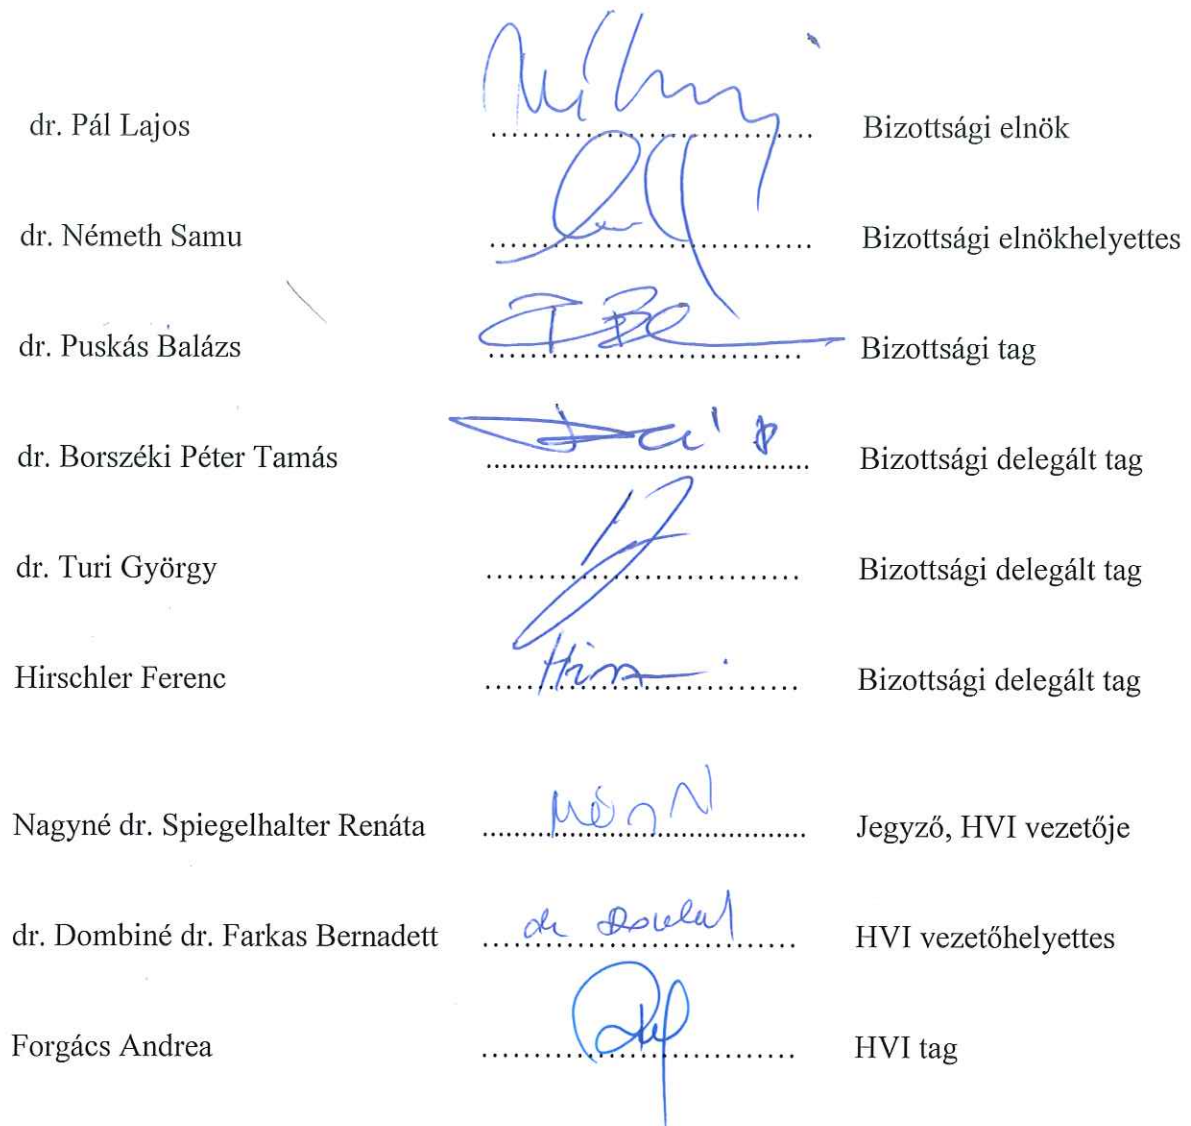 dr. Pál Lajos ................................ Bizottsági elnök
dr. Németh Samu ................................ Bizottsági elnökhelyettes
dr. Puskás Balázs ................................ Bizottsági tag
dr. Borszéki Péter Tamás ................................ Bizottsági delegált tag
dr. Turi György ................................ Bizottsági delegált tag
Hirschler Ferenc ................................ Bizottsági delegált tag
Nagyné dr. Spiegelhalter Renáta ................................ Jegyző, HVI vezetője
dr. Dombiné dr. Farkas Bernadett ................................ HVI vezetőhelyettes
Forgács Andrea ................................ HVI tag